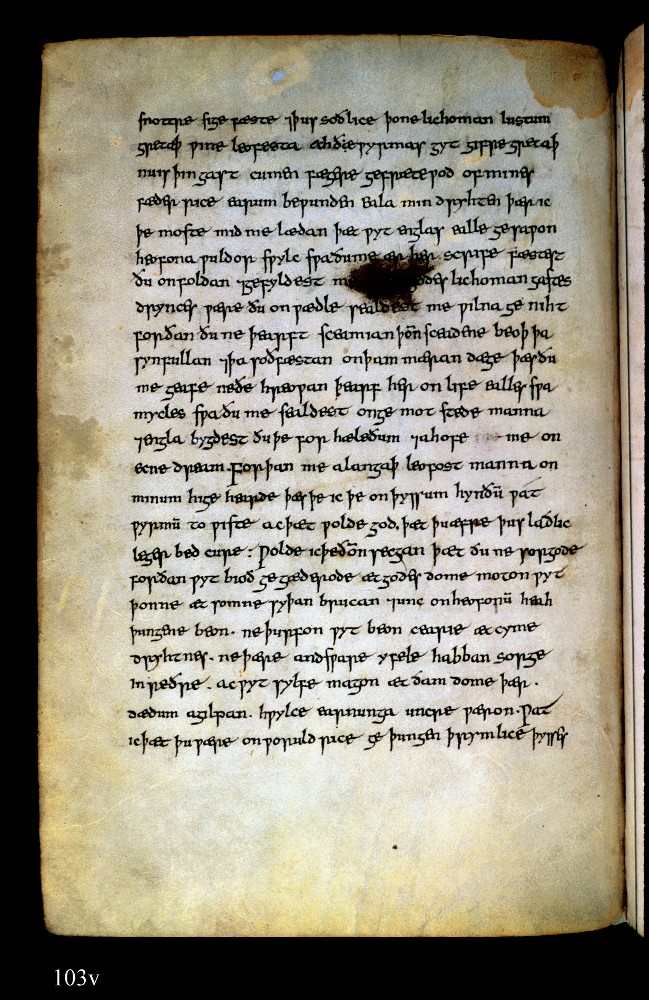 snottre sige fæste ⁊þus soðlice þone lichoman lustum
gretaþ ƿine leofesta ah ðe ƿyrmas gyt gifre gretaþ
nu is þin gast cumen fægere gefræteƿod of mines
fæder rice earum beƿunden eala min dryhten þær ic
þe moste mid me lædan þæt ƿyt englas ealle gesaƿon
heofona ƿuldor sƿylc sƿa ðu me ær her scrife fæstest
ðu on foldan ⁊gefyldest me godes lichoman gastes
drynces ƿære ðu on ƿædle sealdest me ƿilna ge niht
forðan ðu ne þearft sceamian þoñ sceadene beoþ þa
synfullan ⁊þa soðfæstan on þam mæran dæge þæs ðu
me geafe ne ðe hreoƿan þearf her on life ealles sƿa
mycles sƿa ðu me sealdest on ge mot stede manna
⁊engla bygdest ðu þe for hæleðum ⁊ahofe me on
ecne dream. Forþan me a langaþ leofost manna on
minum hige hearde þæs þe ic þe on þyssum hynðū ƿat
ƿyrmū to ƿiste ac þæt ƿolde god, þæt þu æfre þus laðlic
leger bed cure: Ƿolde ic þe ðoñ secgan þæt ðu ne sorgode
forðan ƿyt bioð ge gæderode æt godes dome moton ƿyt
þonne æt somne syþan brucan ⁊unc on heofonū heah
þungene beon. ne þurfon ƿyt beon cearie æt cyme
dryhtnes. ne þære andsƿare yfele habban sorge
in reðre. ac ƿyt sylfe magon æt ðam dome þær.
dædum agilpan. hƿylce earnunga uncre ƿæron. Ƿat
ic þæt þu ƿære on ƿoruld rice ge þungen þrymlice þysses
103v